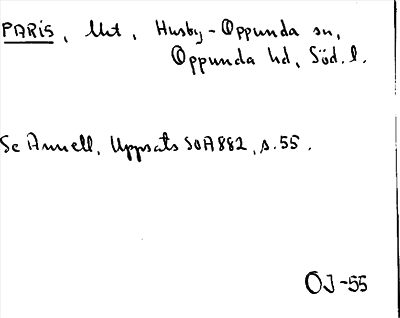 PARIS, Lht, Husby-Oppunda sn,
Oppunda hd, Söd. l.
Se Annell, Uppsats SOA 882, s. 55.
OJ-55